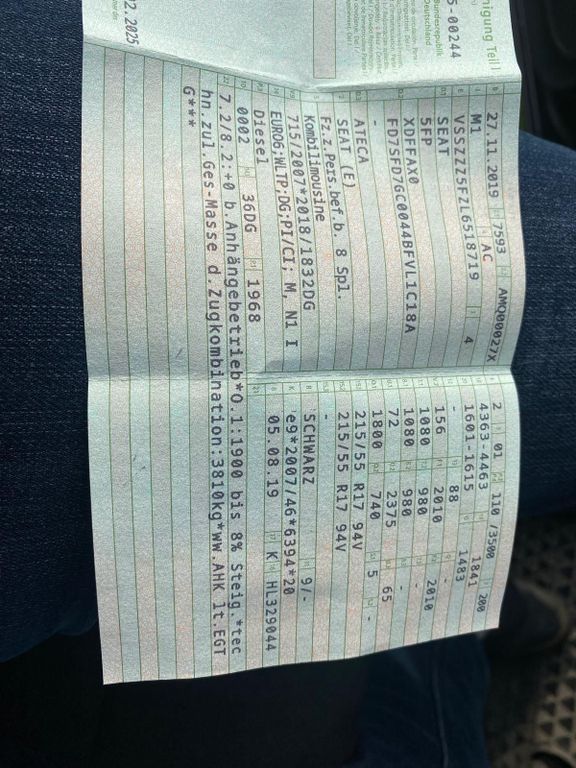 nigung Teil I
5-00244
Bundesrepublik
Deutschland
02.2025
27.11.2019 7593 AMQ00027X
M1 AC
VSSZZZ5FZL6518719 4
SEAT
5FP
XDFFAX0
FD7SFD7GC0044BFVL1C18A
-
ATECA
SEAT (E)
Fz.z.Pers.bef.b. 8 Spl.
Kombilimousine
715/2007*2018/1832DG
EURO6;WLTP;DG;PI/CI; M, N1 I
Diesel
0002 36DG 1968
2 01 110 /3500 200
4363-4463 1841
1601-1615 1483
- 88 -
156 2010 2010
1080 980 -
1080 980 -
72 2375 65
1800 740 5 -
215/55 R17 94V
215/55 R17 94V
-
SCHWARZ 9/-
e9*2007/46*6394*20
05.08.19 K HL329044
7.2/8.2:+0 b.Anhängebetrieb*O.1:1900 bis 8% Steig.*tec
hn.zul.Ges-Masse d.Zugkombination:3810kg*ww.AHK lt.EGT
G***